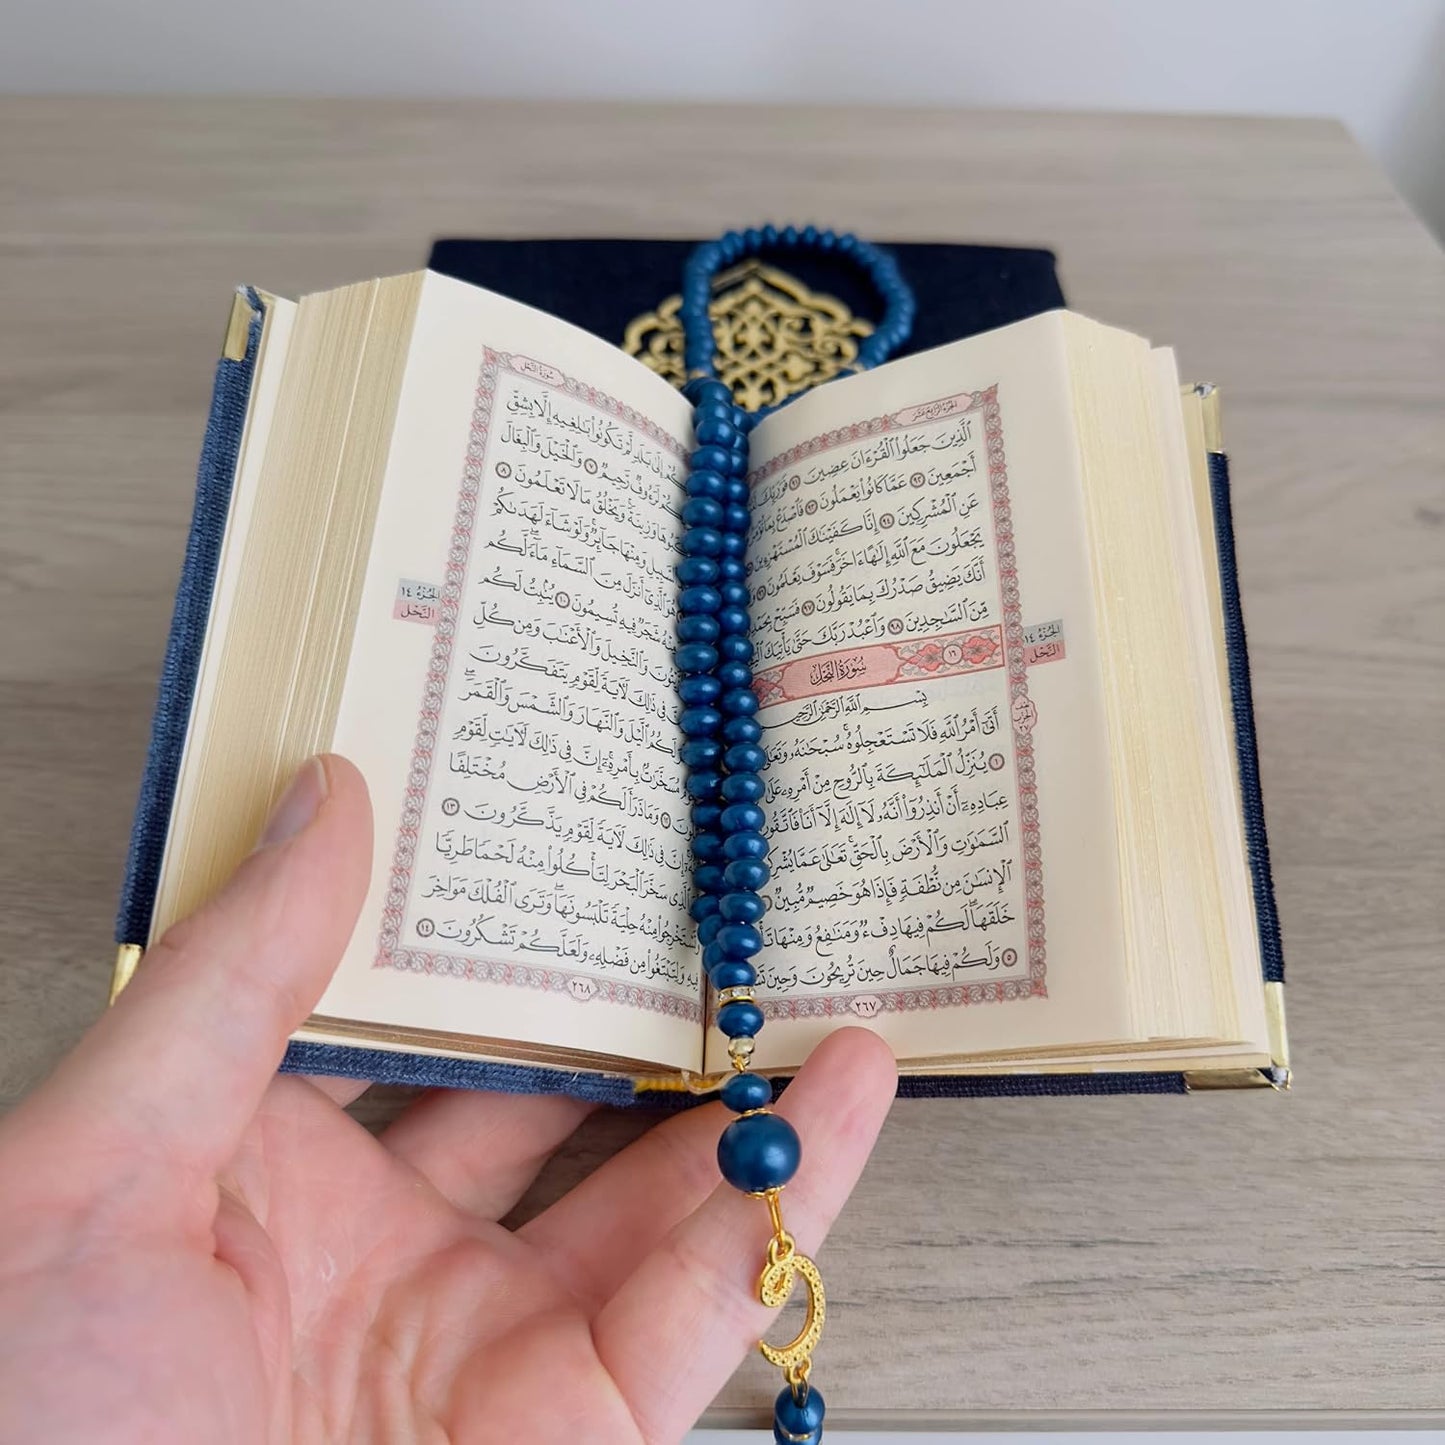 الجزء الرابع عشر
الَّذِينَ جَعَلُوا الْقُرْءَانَ عِضِينَ ٩١ فَوَرَبِّكَ
أَجْمَعِينَ ٩٢ عَمَّا كَانُوا يَعْمَلُونَ ٩٣ فَاصْدَعْ بِمَا تُؤْمَرُ
عَنِ الْمُشْرِكِينَ ٩٤ إِنَّا كَفَيْنَاكَ الْمُسْتَهْزِءِينَ
يَجْعَلُونَ مَعَ اللَّهِ إِلَٰهًا ءَاخَرَ فَسَوْفَ يَعْلَمُونَ
أَنَّكَ يَضِيقُ صَدْرُكَ بِمَا يَقُولُونَ ٩٧ فَسَبِّحْ بِحَمْدِ
مِّنَ السَّاجِدِينَ ٩٨ وَاعْبُدْ رَبَّكَ حَتَّىٰ يَأْتِيَكَ
الجزء ١٤
النحل
سُورَةُ النَّحْلِ ١٦
بِسْمِ اللَّهِ الرَّحْمَٰنِ الرَّحِيمِ
أَتَىٰ أَمْرُ اللَّهِ فَلَا تَسْتَعْجِلُوهُ سُبْحَانَهُ وَتَعَالَىٰ
١ يُنَزِّلُ الْمَلَائِكَةَ بِالرُّوحِ مِنْ أَمْرِهِ عَلَىٰ
عِبَادِهِ أَنْ أَنذِرُوا أَنَّهُ لَا إِلَٰهَ إِلَّا أَنَا فَاتَّقُونِ
السَّمَاوَاتِ وَالْأَرْضَ بِالْحَقِّ تَعَالَىٰ عَمَّا يُشْرِكُونَ
الْإِنسَانَ مِن نُّطْفَةٍ فَإِذَا هُوَ خَصِيمٌ مُّبِينٌ
خَلَقَهَا لَكُمْ فِيهَا دِفْءٌ وَمَنَافِعُ وَمِنْهَا
٥ وَلَكُمْ فِيهَا جَمَالٌ حِينَ تُرِيحُونَ وَحِينَ
٢٦٧
سورة النحل
إِلَىٰ بَلَدٍ لَّمْ تَكُونُوا بَالِغِيهِ إِلَّا بِشِقِّ
لَرَءُوفٌ رَّحِيمٌ ٧ وَالْخَيْلَ وَالْبِغَالَ
وَزِينَةً وَيَخْلُقُ مَا لَا تَعْلَمُونَ ٨
السَّبِيلِ وَمِنْهَا جَائِرٌ وَلَوْ شَاءَ لَهَدَاكُمْ
هُوَ الَّذِي أَنزَلَ مِنَ السَّمَاءِ مَاءً لَّكُم
شَجَرٌ فِيهِ تُسِيمُونَ ١٠ يُنبِتُ لَكُم
وَالنَّخِيلَ وَالْأَعْنَابَ وَمِن كُلِّ
فِي ذَٰلِكَ لَآيَةً لِّقَوْمٍ يَتَفَكَّرُونَ
لَكُمُ اللَّيْلَ وَالنَّهَارَ وَالشَّمْسَ وَالْقَمَرَ
مُسَخَّرَاتٌ بِأَمْرِهِ إِنَّ فِي ذَٰلِكَ لَآيَاتٍ لِّقَوْمٍ
١٢ وَمَا ذَرَأَ لَكُمْ فِي الْأَرْضِ مُخْتَلِفًا
إِنَّ فِي ذَٰلِكَ لَآيَةً لِّقَوْمٍ يَذَّكَّرُونَ ١٣
الَّذِي سَخَّرَ الْبَحْرَ لِتَأْكُلُوا مِنْهُ لَحْمًا طَرِيًّا
وَتَسْتَخْرِجُوا مِنْهُ حِلْيَةً تَلْبَسُونَهَا وَتَرَى الْفُلْكَ مَوَاخِرَ
فِيهِ وَلِتَبْتَغُوا مِن فَضْلِهِ وَلَعَلَّكُمْ تَشْكُرُونَ ١٤
الجزء ١٤
النحل
٢٦٨